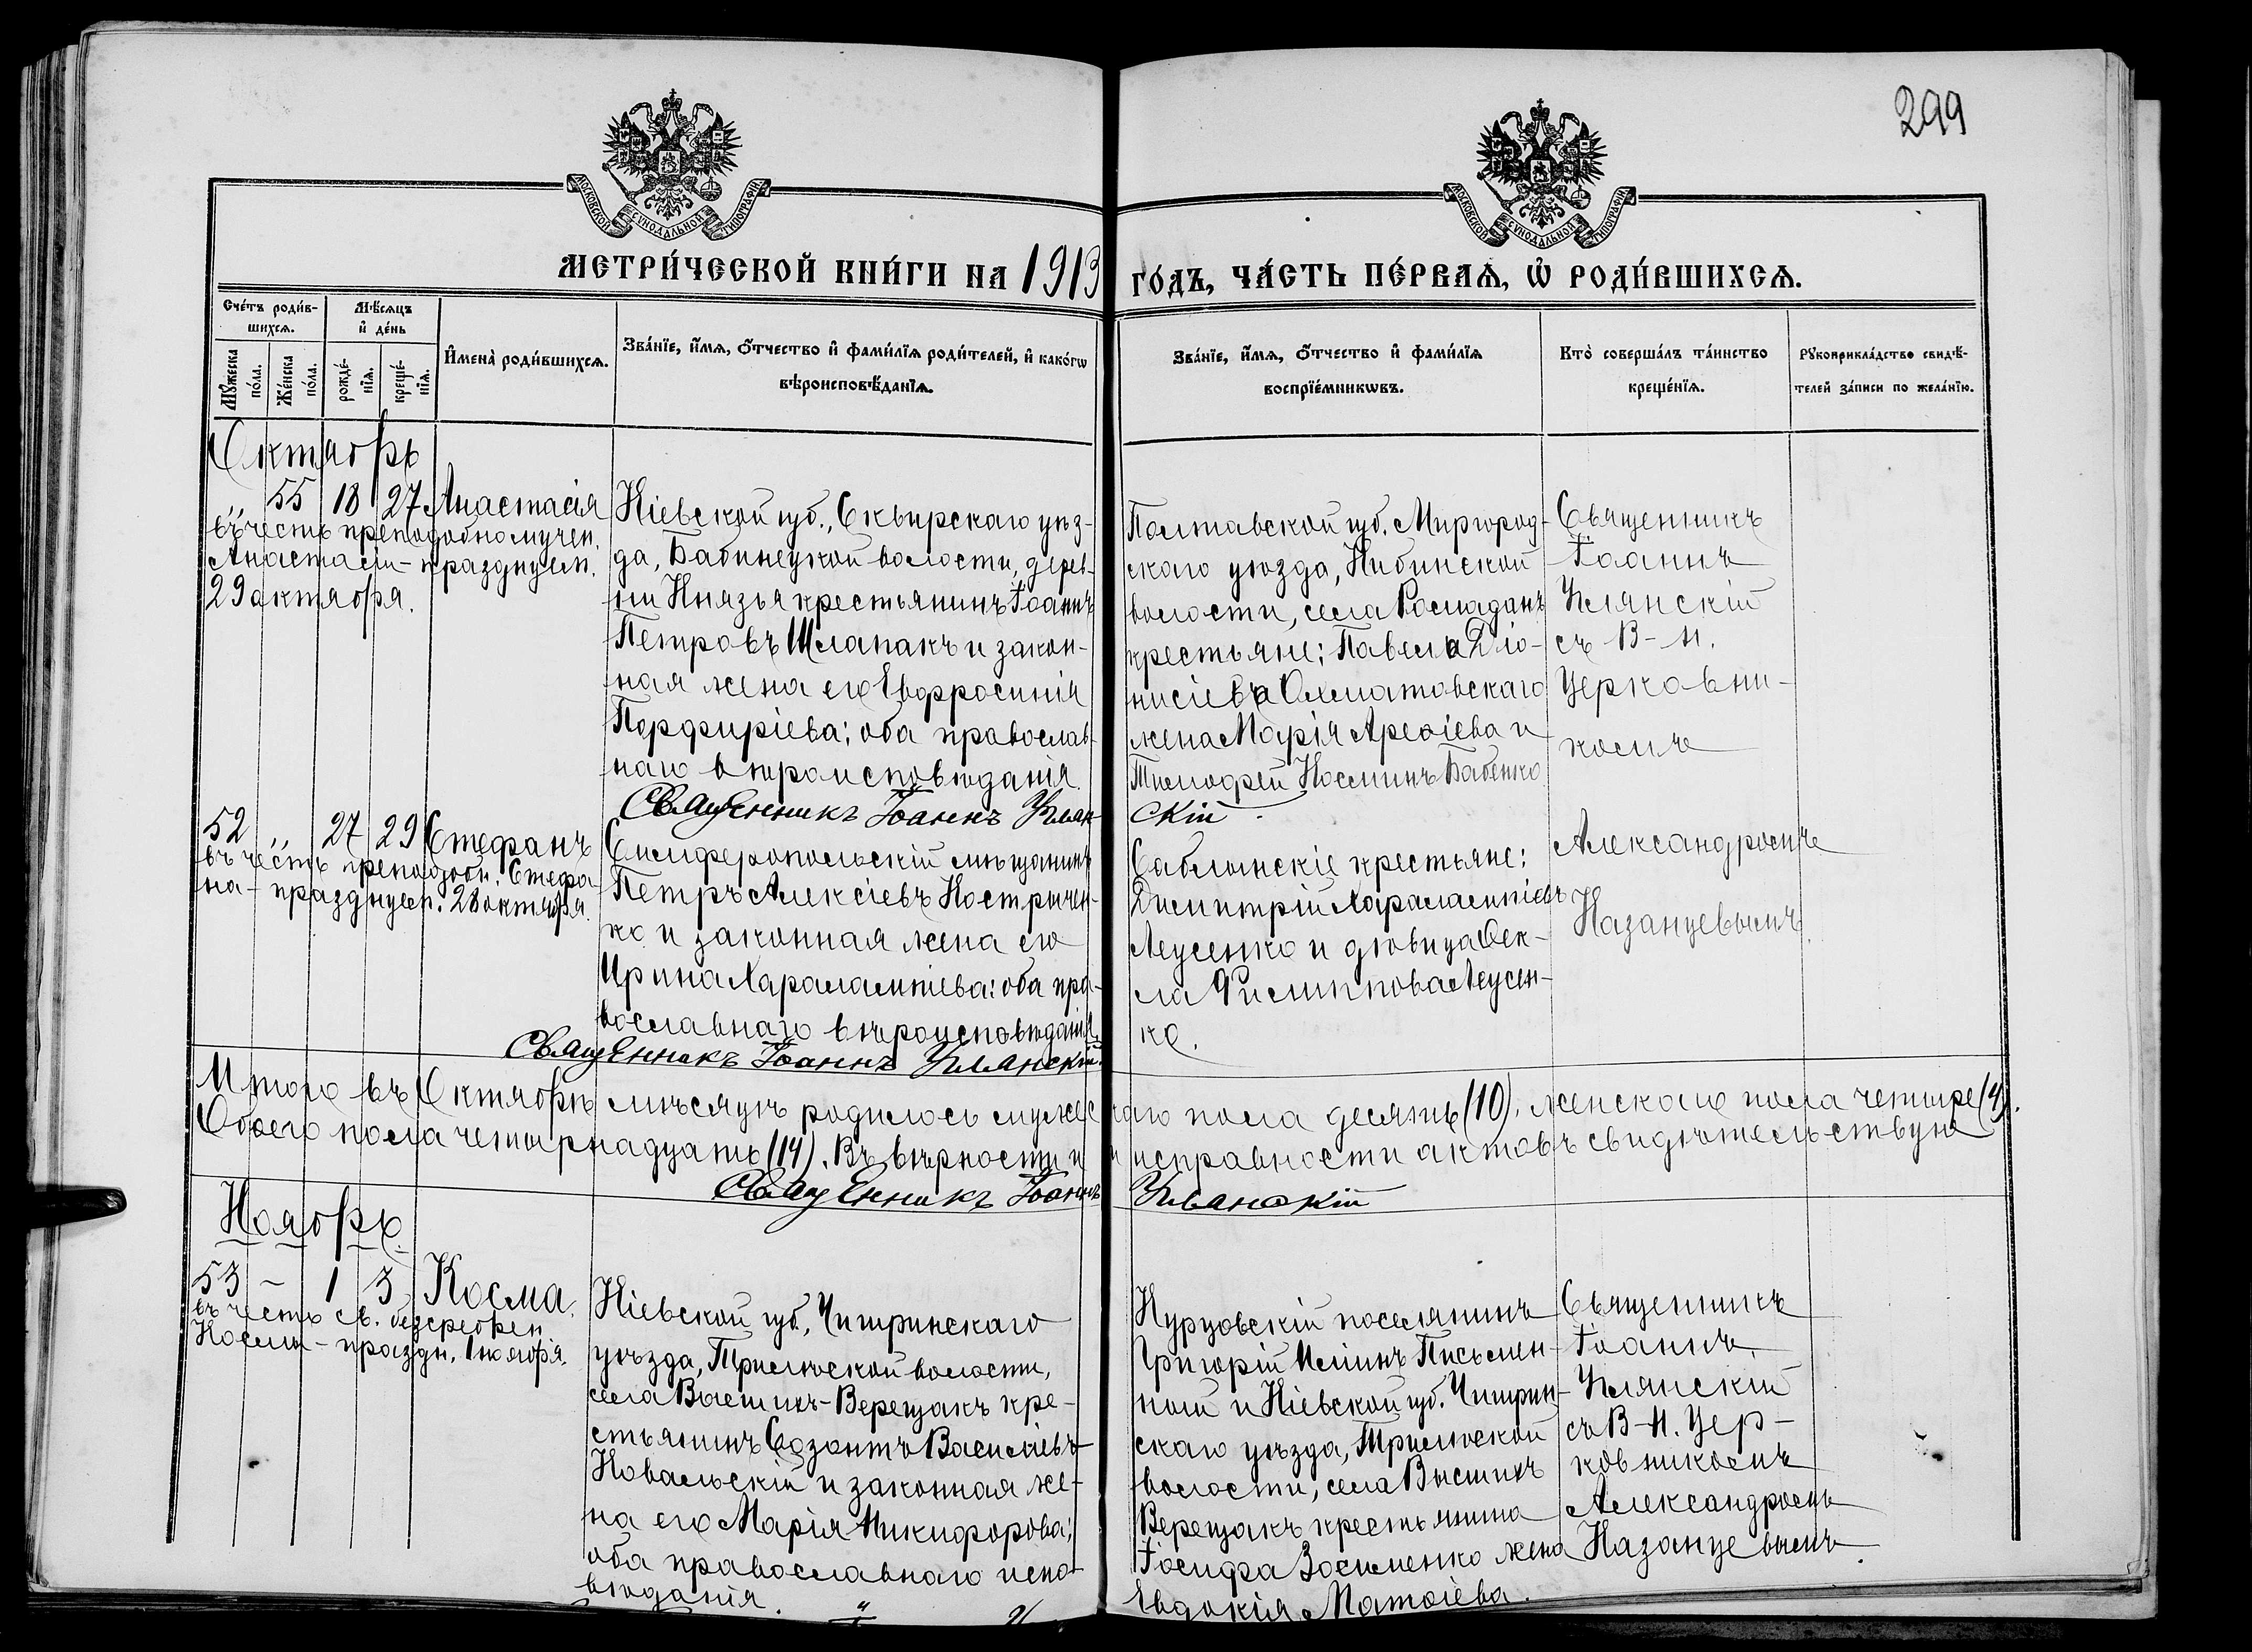 299
МОСКОВСКОЙ СУНОДАЛЬНОЙ ТИПОГРАФІИ
МОСКОВСКОЙ СУНОДАЛЬНОЙ ТИПОГРАФІИ
МЕТРИ́ЧЕСКОЙ КНИ́ГИ НА 1913 ГО́ДЪ, ЧА́СТЬ ПЕ́РВАѦ, Ѡ҆ РОДИ́ВШИХСѦ.
Сче́тъ роди́в-
шихсѧ.
Мѣ́сѧцъ
и҆ де́нь
Мꙋ́жеска
по́ла.
Же́нска
по́ла.
рожде́-
нїѧ.
креще́-
нїѧ.
И҆мена̀ роди́вшихсѧ.
Зва́нїе, и҆́мѧ, ѻ҆́тчество и҆ фами́лїѧ роди́телей, и҆ како́гѡ
вѣроисповѣ́данїѧ.
Зва́нїе, и҆́мѧ, ѻ҆́тчество и҆ фами́лїѧ
воспрїе́мникѡвъ.
Кто̀ соверша́лъ та́инство
креще́нїѧ.
Рꙋкоприкла́дство свидѣ́-
телей за́писи по жела́нїю.
Октябрь
„ 55 18 27 Анастасія
въ честь преподобномучен.
Анастасіи - празднуем.
29 октября.
Кіевской губ., Сквирскаго уѣз-
да, Бабинецкой волости, дерев-
ни Князья крестьянинъ Іоаннъ
Петровъ Шлапакъ и закон-
ная жена его Евфросинія
Порфиріева; оба православ-
наго вѣроисповѣданія.
Священникъ Іоаннъ Углян-
скій.
Полтавской губ. Миргород-
скаго уѣзда, Кибинской
волости, села Рокладанъ
крестьяне: Павела Діо-
нисіева Охматовскаго
жена Марія Арефіева и
Тимофей Косминъ Бабенко
Священникъ
Іоаннъ
Углянскій
съ В-И.
Церковни-
комъ
52 „ 27 29 Стефанъ
въ честь преподобн. Стефа-
на - празднуем. 28 октября.
Симферопольскій мѣщанинъ
Петръ Алексіевъ Кострычен-
ко и законная жена его
Ирина Харалампіева: оба пра-
вославнаго вѣроисповѣданія.
Священникъ Іоаннъ Углянскій.
Саблынскіе крестьяне:
Димитрій Харалампіевъ
Леусенко и дѣвица Фек-
ла Филиппова Леусен-
ко.
Александромъ
Казанцевымъ.
Итого въ Октябрѣ мѣсяцѣ родилось мужескаго пола десять (10), женскаго пола четыре (4).
Обоего пола четырнадцать (14). Въ вѣрности и исправности актовъ свидѣтельствую
Священникъ Іоаннъ Углянскій
Ноябрь.
53 – 1 3 Косма.
въ честь св. безсребрен.
Космы - праздн. 1 ноября.
Кіевской губ., Чигринскаго
уѣзда, Трилѣсской волости,
села Высшихъ-Верещакъ кре-
стьянинъ Созонтъ Василіевъ
Ковальскій и законная же-
на его Марія Никифорова;
оба православнаго испо-
вѣданія.
Курцовскій поселянинъ
Григорій Иліинъ Письмен-
ной и Кіевской губ. Чигрин-
скаго уѣзда, Трилѣсской
волости, села Высшихъ
Верещакъ крестьянина
Іосифа Зосименко жена
Евдокія Матѳіева.
Священникъ
Іоаннъ
Углянскій
съ В-И. Цер-
ковникомъ
Александромъ
Казанцевымъ.